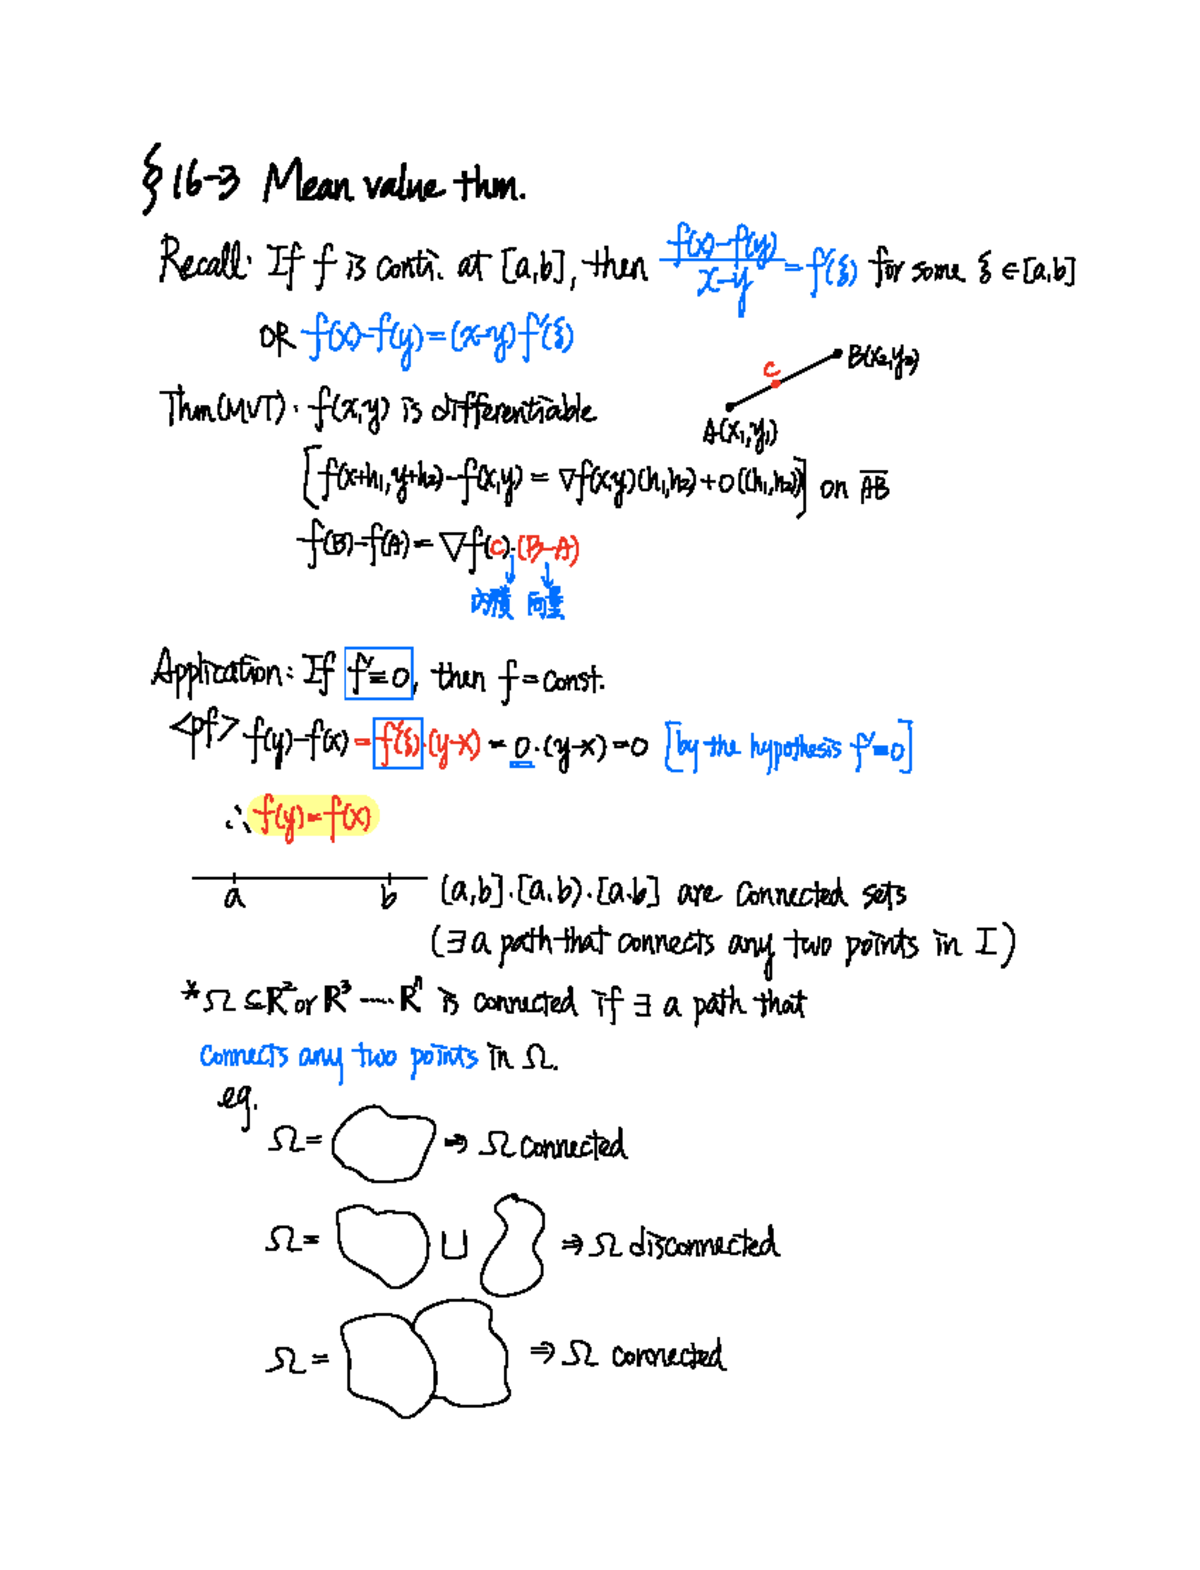 § 16-3 Mean value thm.
Recall: If f is conti. at [a,b], then f(x)-f(y)/x-y = f'(ξ) for some ξ ∈ [a,b]
OR f(x)-f(y) = (x-y)f'(ξ)
C
B(x₂,y₂)
A(x₁,y₁)
Thm(MVT): f(x,y) is differentiable
[f(x+h₁,y+h₂)-f(x,y) = ∇f(x,y)(h₁,h₂)+o((h₁,h₂))] on A̅B̅
f(B)-f(A) = ∇f(c)·(B-A)
內積 向量
Application: If f'≡0, then f = const.
<pf> f(y)-f(x) = f'(ξ)·(y-x) = 0·(y-x) = 0 [by the hypothesis f'≡0]
∴ f(y)=f(x)
a b (a,b].[a.b).[a.b] are connected sets
(∃ a path that connects any two points in I)
*Ω ⊆ ℝ² or ℝ³ ---- ℝⁿ is connected if ∃ a path that
connects any two points in Ω.
eg.
Ω = ⇒ Ω connected
Ω = ⊔ ⇒ Ω disconnected
Ω = ⇒ Ω connected